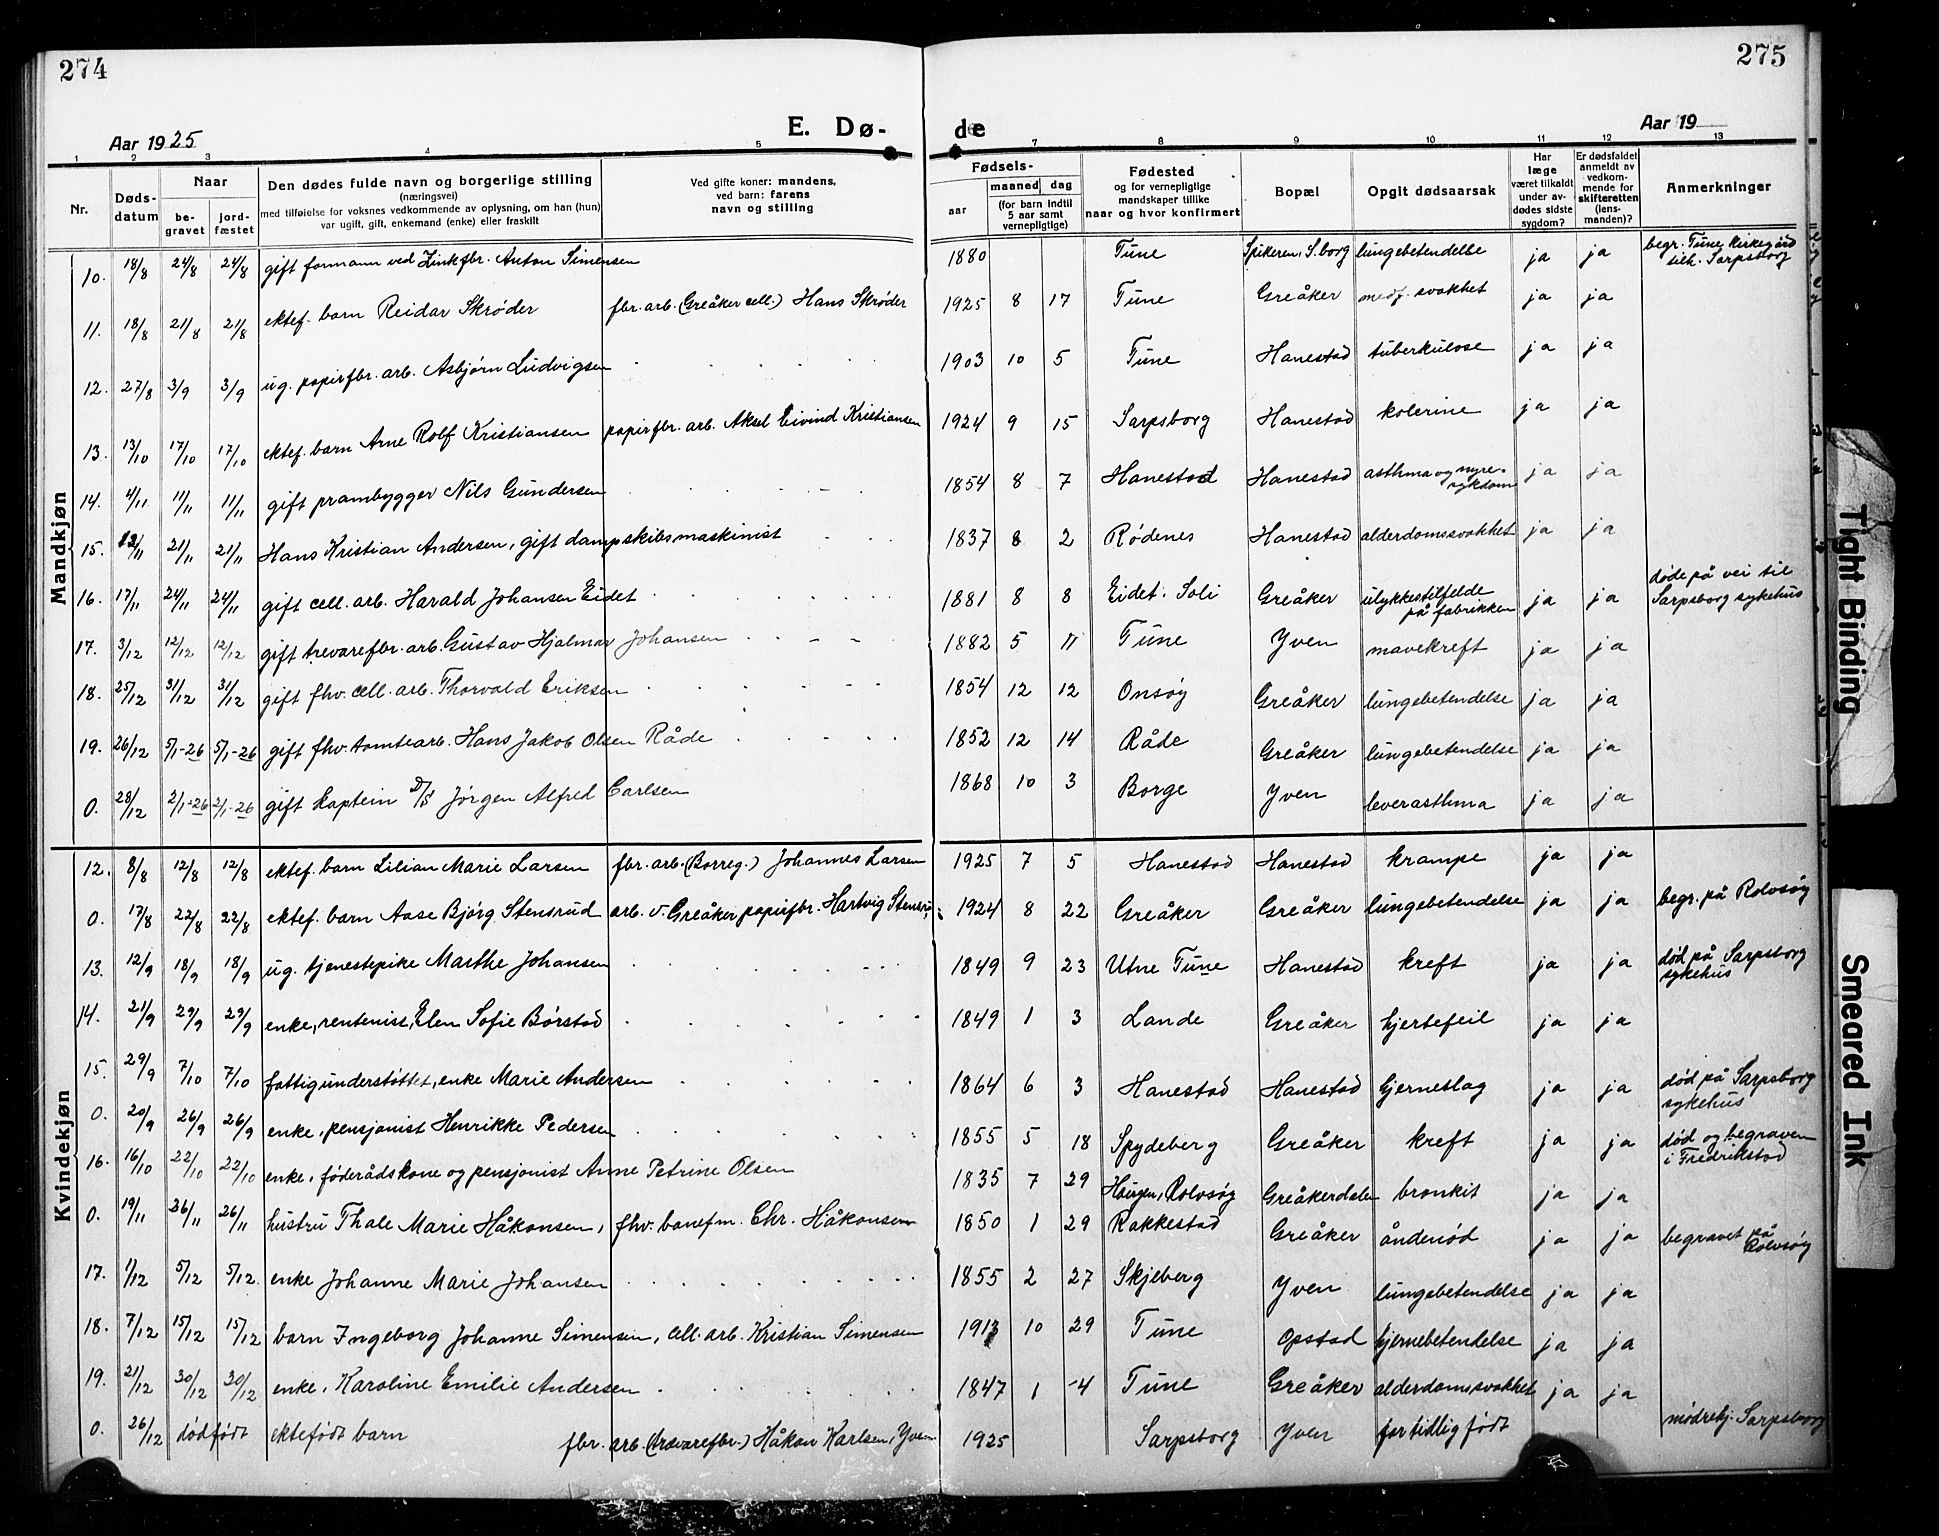 274
275
Aar 1925
E. Dø-
de
Aar 19
1 2 3 4 5 7 8 9 10 11 12 13
Nr.
Døds-
datum
Naar
be-
gravet
jord-
fæstet
Den dødes fulde navn og borgerlige stilling
(næringsvei)
med tilføielse for voksnes vedkommende av oplysning, om han (hun)
var ugift, gift, enkemand (enke) eller fraskilt
Ved gifte koner: mandens,
ved barn: farens
navn og stilling
Fødsels-
aar
maaned
dag
(for barn indtil
5 aar samt
vernepligtige)
Fødested
og for vernepligtige
mandskaper tillike
naar og hvor konfirmert
Bopæl
Opgit dødsaarsak
Har
læge
været tilkaldt
under av-
dødes sidste
sygdom?
Er dødsfaldet
anmeldt av
vedkom-
mende for
skifteretten
(lens-
manden)?
Anmerkninger
Mandkjøn
10. 18/8 24/8 24/8 gift formann ved Zinkfbr. Anton Simensen 1880 Tune Spikeren, S.borg lungebetendelse ja ja begr. Tune kirkegård
tilh. Sarpsborg
11. 18/8 21/8 21/8 ektef. barn Reidar Skrøder fbr. arb. (Greåker cell.) Hans Skrøder 1925 8 17 Tune Greåker medf. svakhet ja ja
12. 27/8 3/9 3/9 ug. papirfbr. arb. Asbjørn Ludvigsen 1903 10 5 Tune Hanestad tuberkulose ja ja
13. 13/10 17/10 17/10 ektef. barn Arne Rolf Kristiansen papirfbr. arb. Aksel Eivind Kristiansen 1924 9 15 Sarpsborg Hanestad kolerine ja ja
14. 4/11 11/11 11/11 gift prambygger Nils Gundersen 1854 8 7 Hanestad Hanestad asthma og nyre-
sykdom ja ja
15. 12/11 21/11 21/11 Hans Kristian Andersen, gift dampskibsmaskinist 1837 8 2 Rødenes Hanestad alderdomssvakhet ja ja
16. 17/11 24/11 24/11 gift cell. arb. Harald Johansen Eidet 1881 8 8 Eidet. Soli Greåker ulykkestilfelde
på fabrikken ja ja døde på vei til
Sarpsborg sykehus
17. 3/12 12/12 12/12 gift trevarefbr. arb. Gustav Hjalmar Johansen 1882 5 11 Tune Yven mavekreft ja ja
18. 25/12 31/12 31/12 gift fhv. cell. arb. Thorvald Eriksen 1854 12 12 Onsøy Greåker lungebetendelse ja ja
19. 26/12 5/1-26 5/1-26 gift fhv. tomtearb. Hans Jakob Olsen Råde 1852 12 14 Råde Greåker lungebetendelse ja ja
0. 28/12 2/1-26 2/1-26 gift kaptein D/S Jørgen Alfred Carlsen 1868 10 3 Borge Yven leverasthma ja ja
Kvindekjøn
12. 8/8 12/8 12/8 ektef. barn Lilian Marie Larsen fbr. arb. (Borreg.) Johannes Larsen 1925 7 5 Hanestad Hanestad krampe ja ja
0. 17/8 22/8 22/8 ektef. barn Aase Bjørg Stensrud arb. v. Greåker papirfbr. Hartvig 1924 8 22 Greåker Greåker lungebetendelse ja ja begr. på Rolvsøy
13. 12/9 18/9 18/9 ug. tjenestepike Marthe Johansen 1849 9 23 Utne Tune Hanestad kreft ja ja død på Sarpsborg
sykehus
14. 21/9 29/9 29/9 enke, rentenist, Elen Sofie Børstad 1849 1 3 Lande Greåker hjertefeil ja ja
15. 29/9 7/10 7/10 fattigunderstøttet, enke Marie Andersen 1864 6 3 Hanestad Hanestad hjerneslag ja ja død på Sarpsborg
sykehus
0. 20/9 26/9 26/9 enke, pensjonist Henrikke Pedersen 1855 5 18 Spydeberg Greåker kreft ja ja død og begraven
i Fredrikstad
16. 16/10 22/10 22/10 enke, føderådskone og pensjonist Anne Petrine Olsen 1835 7 29 Haugen, Rolvsøy Greåkerdalen bronkit ja ja
0. 19/11 26/11 26/11 hustru Thale Marie Håkonsen, fhv. banefm. Chr. Håkonsen 1850 1 29 Rakkestad Greåker åndenød ja ja begravet på
Rolvsøy
17. 1/12 5/12 5/12 enke Johanne Marie Johansen 1855 2 27 Skjeberg Yven lungebetendelse ja ja
18. 7/12 15/12 15/12 barn Ingeborg Johanne Simensen, cell. arb. Kristian Simensen 1913 10 29 Tune Opstad hjernebetendelse ja ja
19. 21/12 30/12 30/12 enke, Karoline Emilie Andersen 1847 1 4 Tune Greåker alderdomssvakhet ja ja
0. 26/12 dødfødt ektefødt barn fbr. arb. (trævarefbr.) Håkon Karlsen, Yven 1925 Sarpsborg Yven for tidlig født mødrehj. Sarpsborg
Tight Binding
Smeared Ink